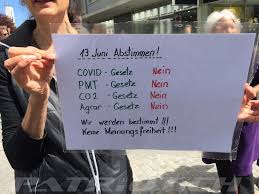 13 Juni Abstimmen!
COVID - Gesetz Nein
PMT - Gesetz Nein
CO2 - Gesetz Nein
Agrar - Gesetz Nein
Wir werden bestimmt!!!
Keine Meinungsfreiheit!!!